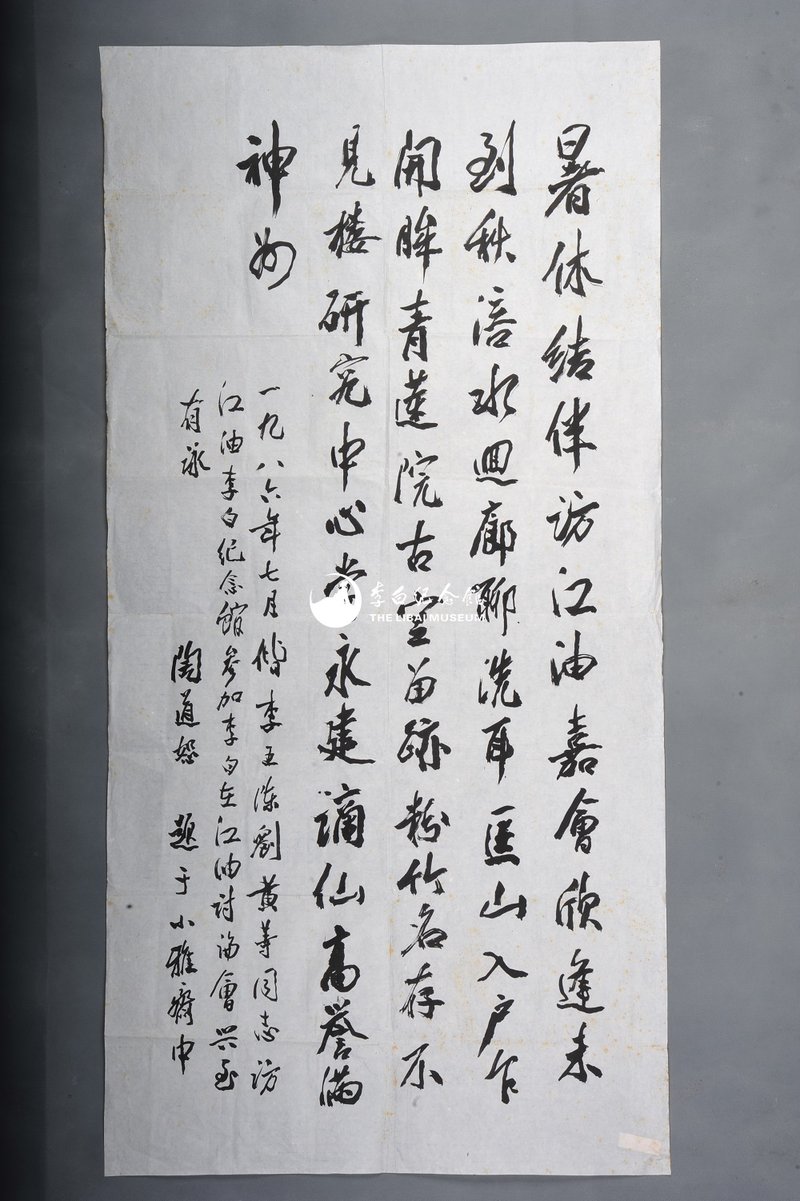 暑休结伴访江油嘉會欣逢未
到秋涪水思廊聊洗耳匡山入户乍
開眸青莲院古空留跡粉竹名存不
見楼研究中心當永建谪仙高誉满
神州
一九八六年七月偕李王陈劉黄等同志访
江油李白纪念館參加李白在江油討論會兴至
有詠
陶道恕 题于小雅齋中
李白纪念館
THE LIBAI MUSEUM